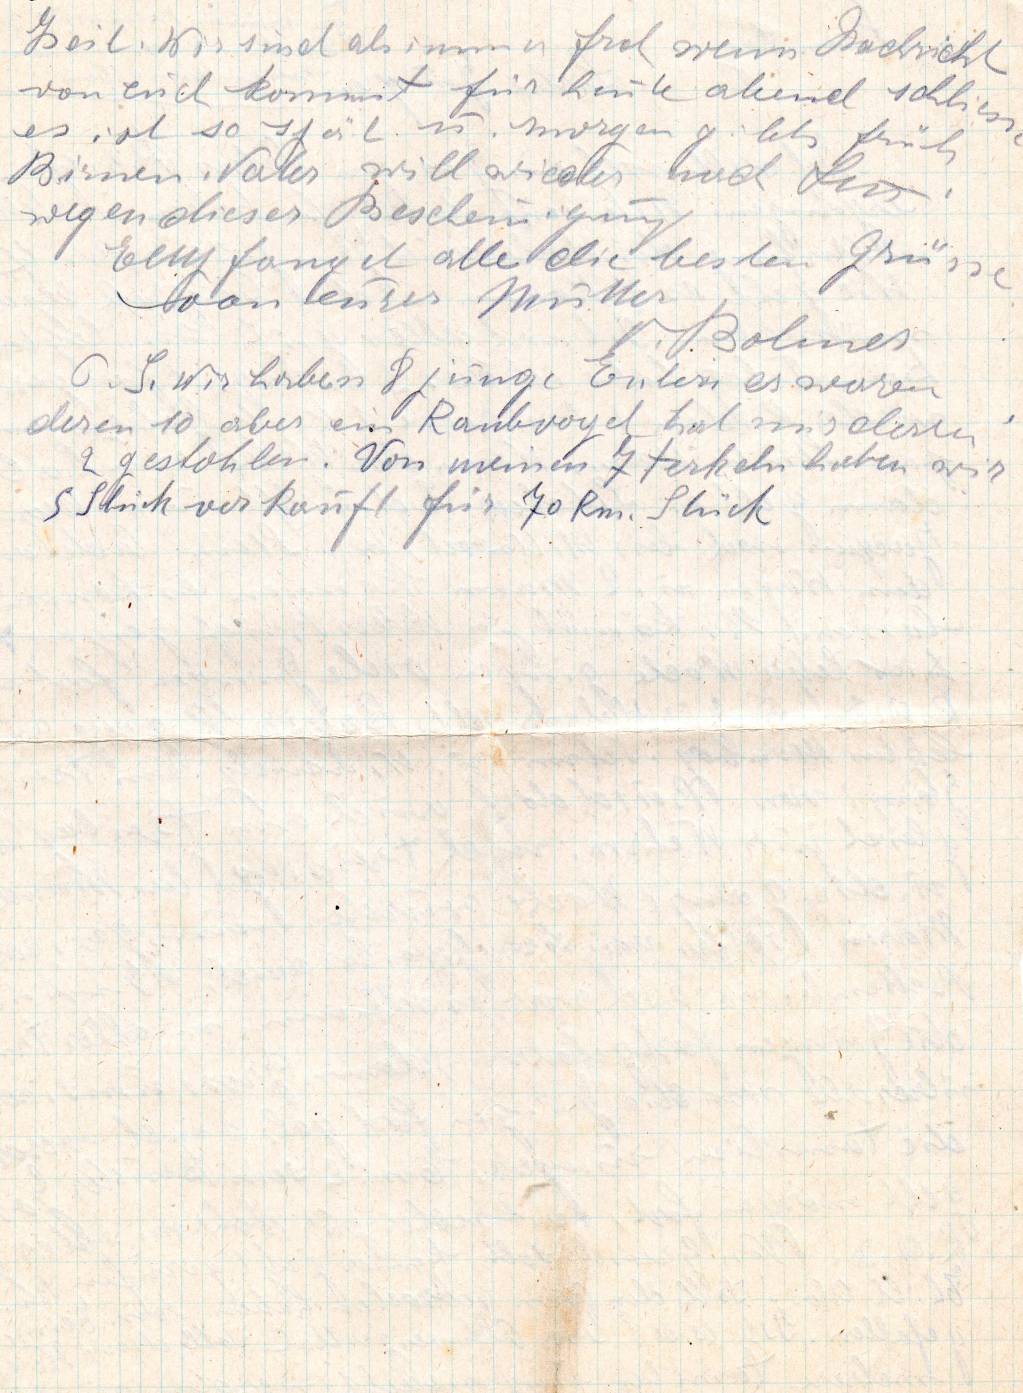 Zeit. Wir sind als immer froh wenn Nachricht
von euch kommt für heute abend schliesse
es ist so spät u. morgen gibts früh
Birnen. Vater will wieder nach
wegen dieser Bescheinigung
Empfanget alle die besten Grüsse
von eurer Mutter
P. S. wir haben 8 junge Enten es waren
deren 10 aber ein Raubvogel hat mir deren
2 gestohlen. Von meinen 7 Ferkeln haben wir
5 Stück verkauft für 70 Rm. Stück